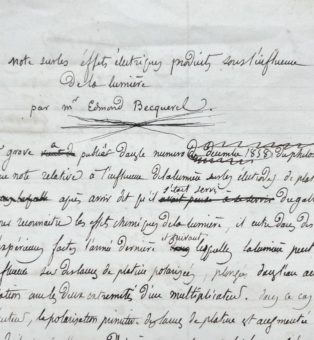 note sur les effets électriques produits sous l'influence
de la lumière
par Mr Edmond Becquerel.
grove a publié dans le numero de decembre 1858 du philo
note relative à l'influence de la lumière sur les electrodes de plat
après avoir dit qu'il s'était servi du galv
reconnaitre les effets chimiques de la lumière, il entre dans
expériences faites l'année dernière et suivant lesquelles la lumière peut
sur des lames de platine polarisées, plongées dans l'eau
aux deux extremités d'un multiplicateur. dans ce cas
la polarisation primitive des lames de platine est augmentée